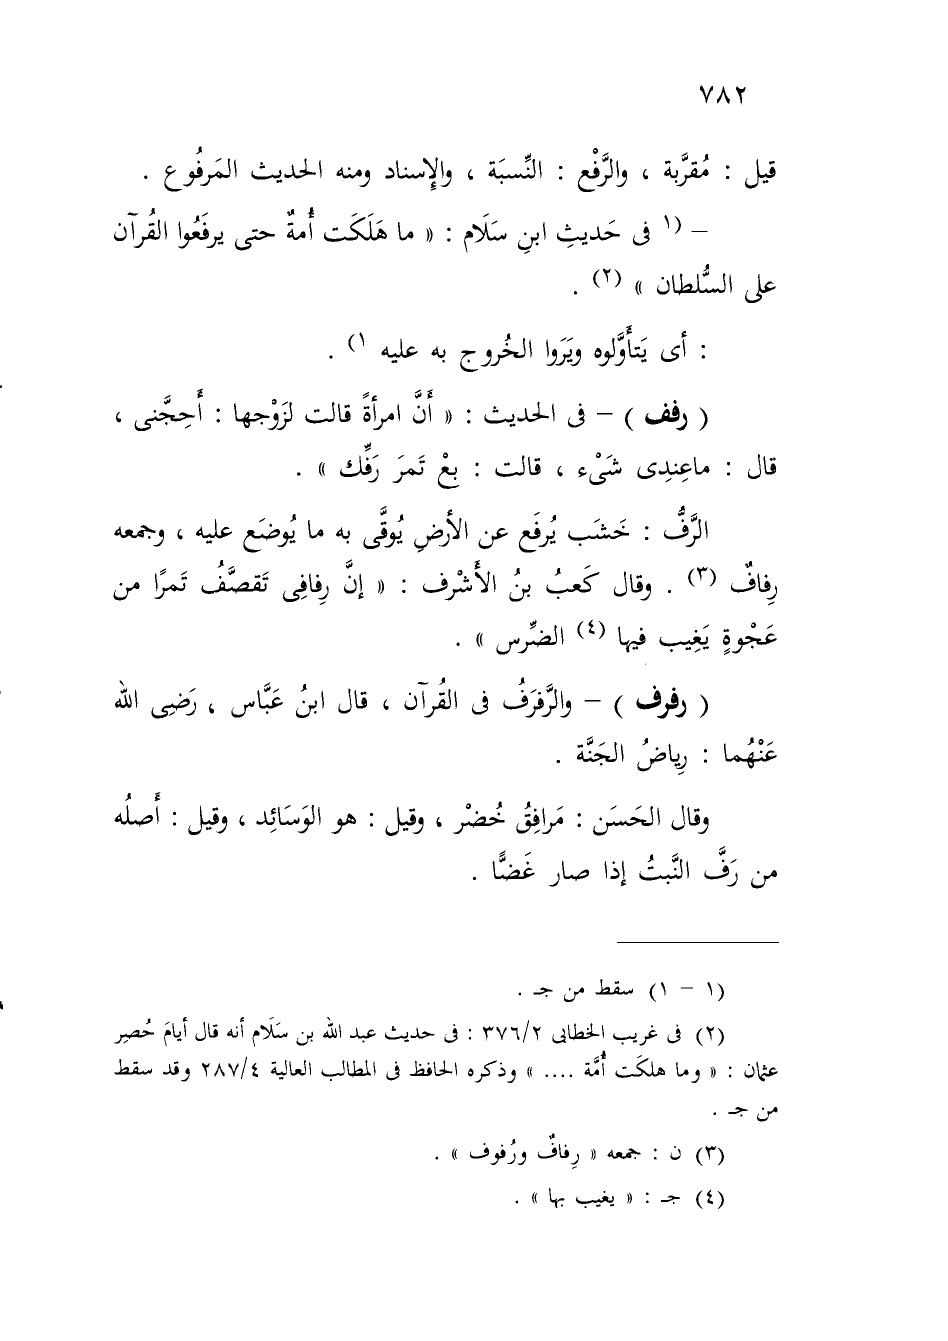 ٧٨٢
قيل : مُقرَّبة ، والرَّفْع : النِّسبَة ، والإسناد ومنه الحديث المَرفُوع .
– (١ فى حَديثِ ابنِ سَلَام : « ما هَلَكَت أُمةٌ حتى يرفَعُوا القُرآن
على السُّلطان » (٢) .
: أى يَتأَوَّلوه ويَرَوا الخُروج به عليه ١) .
( رفف ) – فى الحديث : « أَنَّ امرأةً قالت لزَوْجها : أَحِجَّنى ،
قال : ماعِندِى شَىْء ، قالت : بِعْ تَمرَ رَفِّك » .
الرَّفُّ : خَشَب يُرفَع عن الأرضِ يُوقَّى به ما يُوضَع عليه ، وجمعه
رِفافٌ (٣) . وقال كَعبُ بنُ الأَشْرف : « إنَّ رِفافِى تَقصَّفُ تَمرًا من
عَجْوةٍ يَغِيب فيها (٤) الضِّرس » .
( رفرف ) – والرَّفرَفُ فى القُرآن ، قال ابنُ عَبَّاس ، رَضِى الله
عَنْهُما : رِياضُ الجَنَّة .
وقال الحَسَن : مَرافِقُ خُضْر ، وقيل : هو الوَسَائِد ، وقيل : أَصلُه
من رَفَّ النَّبتُ إذا صار غَضًّا .
(١ – ١) سقط من جـ .
(٢) فى غريب الخطابى ٣٧٦/٢ : فى حديث عبد الله بن سَلَام أنه قال أيامَ حُصِر
عثمان : « وما هلكَت أُمَّة .... » وذكره الحافظ فى المطالب العالية ٢٨٧/٤ وقد سقط
من جـ .
(٣) ن : جمعه « رِفافٌ ورُفوف » .
(٤) جـ : « يغيب بها » .